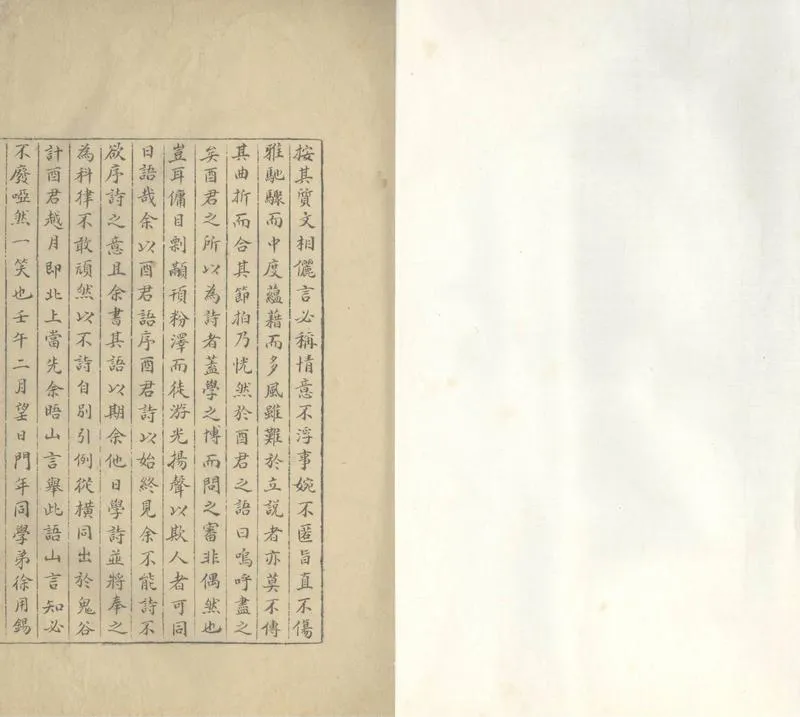 按其質文相儷言必稱情意不浮事婉不匿旨直不傷
雅馳驟而中度蘊藉而多風雖難於立說者亦莫不傳
其曲折而合其節拍乃恍然於酉君之語曰嗚呼盡之
矣酉君之所以為詩者蓋學之博而問之審非偶然也
豈耳傭目剽顢頇粉澤而徒游光揚聲以欺人者可同
日語哉余以酉君語序酉君詩以始終見余不能詩不
欲序詩之意且余書其語以期余他日學詩並將奉之
為科律不敢頑然以不詩自別引例從橫同出於鬼谷
計酉君越月即北上當先余晤山言舉此語山言知必
不廢啞然一笑也壬午二月望日門年同學弟徐用錫